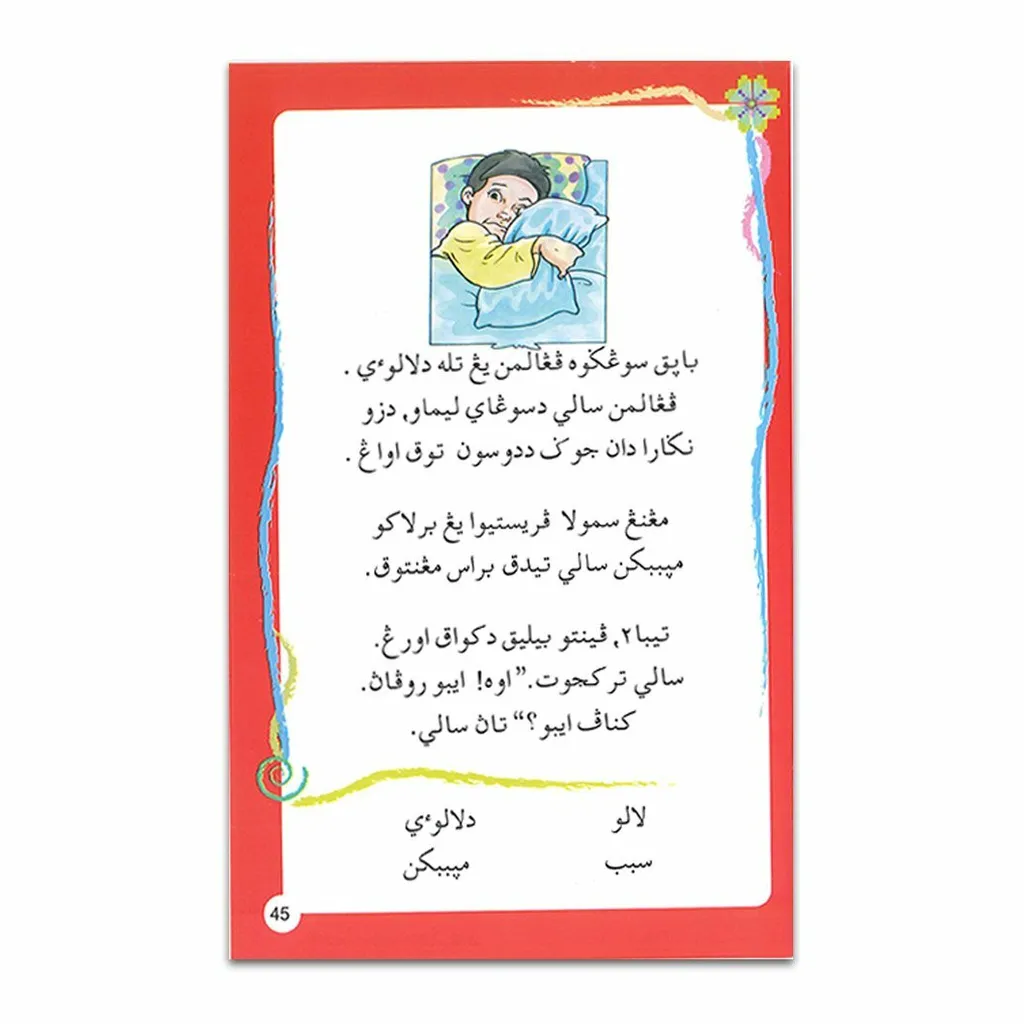 باڽق سوڠݢوه ڤڠالمن يڠ تله دلالوءي .
ڤڠالمن سالي دسوڠاي ليماو, دزو
نݢارا دان جوݢ ددوسون توق اواڠ .
مڠنڠ سمولا ڤريستيوا يڠ برلاکو
مڽببکن سالي تيدق براس مڠنتوق.
تيبا٢, ڤينتو بيليق دکواق اورڠ.
سالي ترکجوت.”اوه! ايبو روڤاڽ.
کناڤ ايبو؟“ تاڽ سالي.
لالو دلالوءي
سبب مڽببکن
45